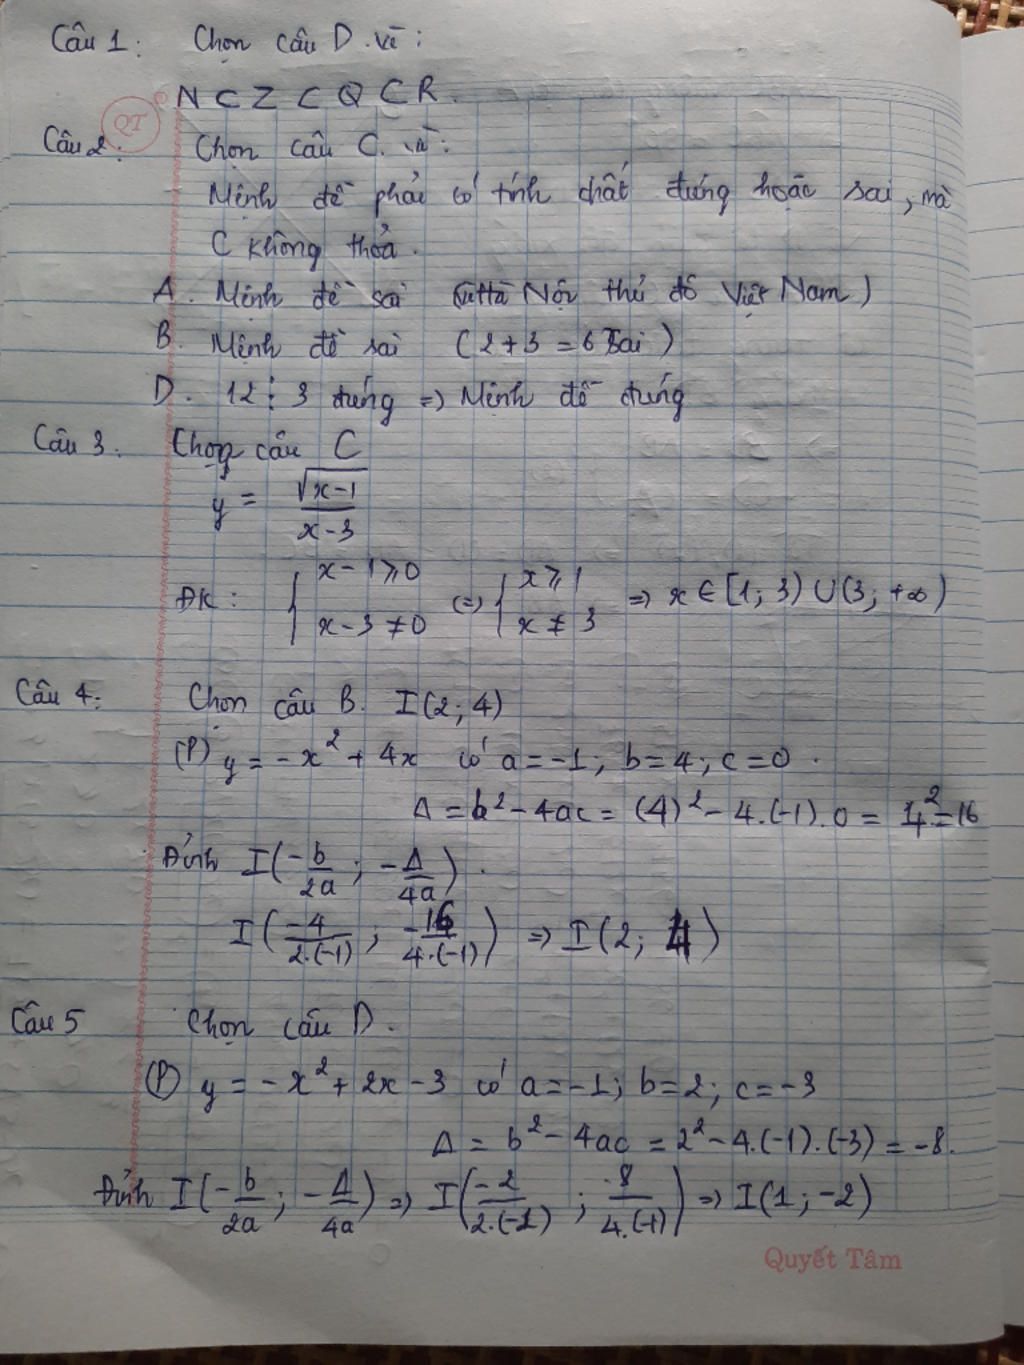 Câu 1: Chọn câu D. vì:
N ⊂ Z ⊂ Q ⊂ R.
QT
Câu 2: Chọn câu C. vì:
Mệnh đề phải có tính chất đúng hoặc sai, mà
C không thỏa.
A. Mệnh đề sai ( Hà Nội thủ đô Việt Nam)
B. Mệnh đề sai (2+3=6 sai)
D. 12 ⋮ 3 đúng => Mệnh đề đúng
Câu 3. Chọn câu C
y = √(x-1) / (x-3)
ĐK: { x-1 ≥ 0 ; x-3 ≠ 0 (=) { x ≥ 1 ; x ≠ 3 => x ∈ [1; 3) ∪ (3; +∞)
Câu 4: Chọn câu B. I(2; 4)
(P) y = -x² + 4x có a = -1; b = 4; c = 0.
Δ = b² - 4ac = (4)² - 4.(-1).0 = 4² = 16
Đỉnh I(-b/2a ; -Δ/4a).
I(-4/2.(-1) ; -16/4.(-1)) => I(2; 4)
Câu 5 Chọn câu D.
(P) y = -x² + 2x - 3 có a = -1; b = 2; c = -3
Δ = b² - 4ac = 2² - 4.(-1).(-3) = -8.
Đỉnh I(-b/2a ; -Δ/4a) => I(-2/2.(-1) ; 8/4.(-1)) => I(1; -2)
Quyết Tâm